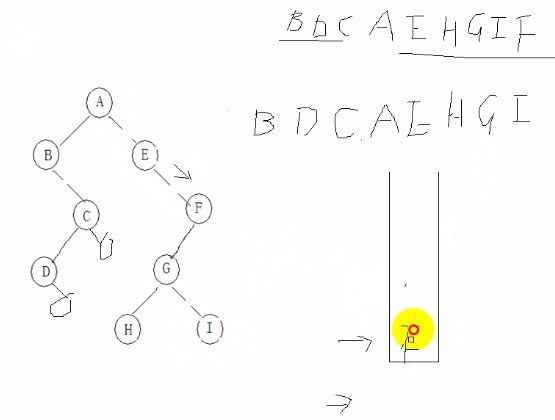 B D C A E H G I F
B D C A E H G I
A
B E
C F
D G
H I